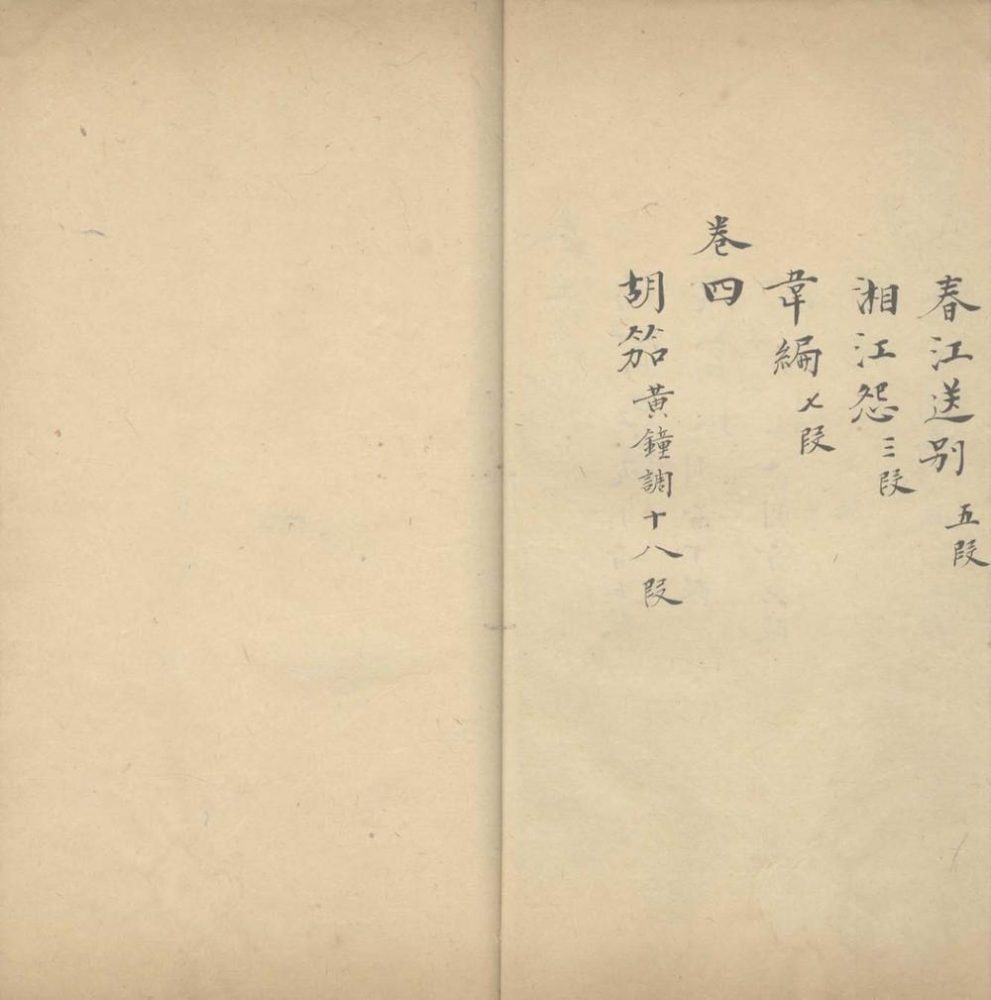 春江送别 五段
湘江怨 三段
韋編 七段
卷四
胡笳 黃鐘調十八段